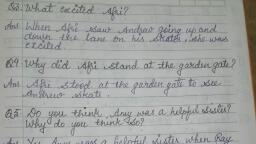 Q3. What excited Afi?
Ans. When Afi saw Andrew going up and
down the lane on his skates, she was
excited.
Q4 Why did Afi stand at the garden gate?
Ans. Afi stood at the garden gate to see
Andrew skate.
Q5. Do you think Any was a helpful sister?
Why do you think so?
was a helpful sister when Ray